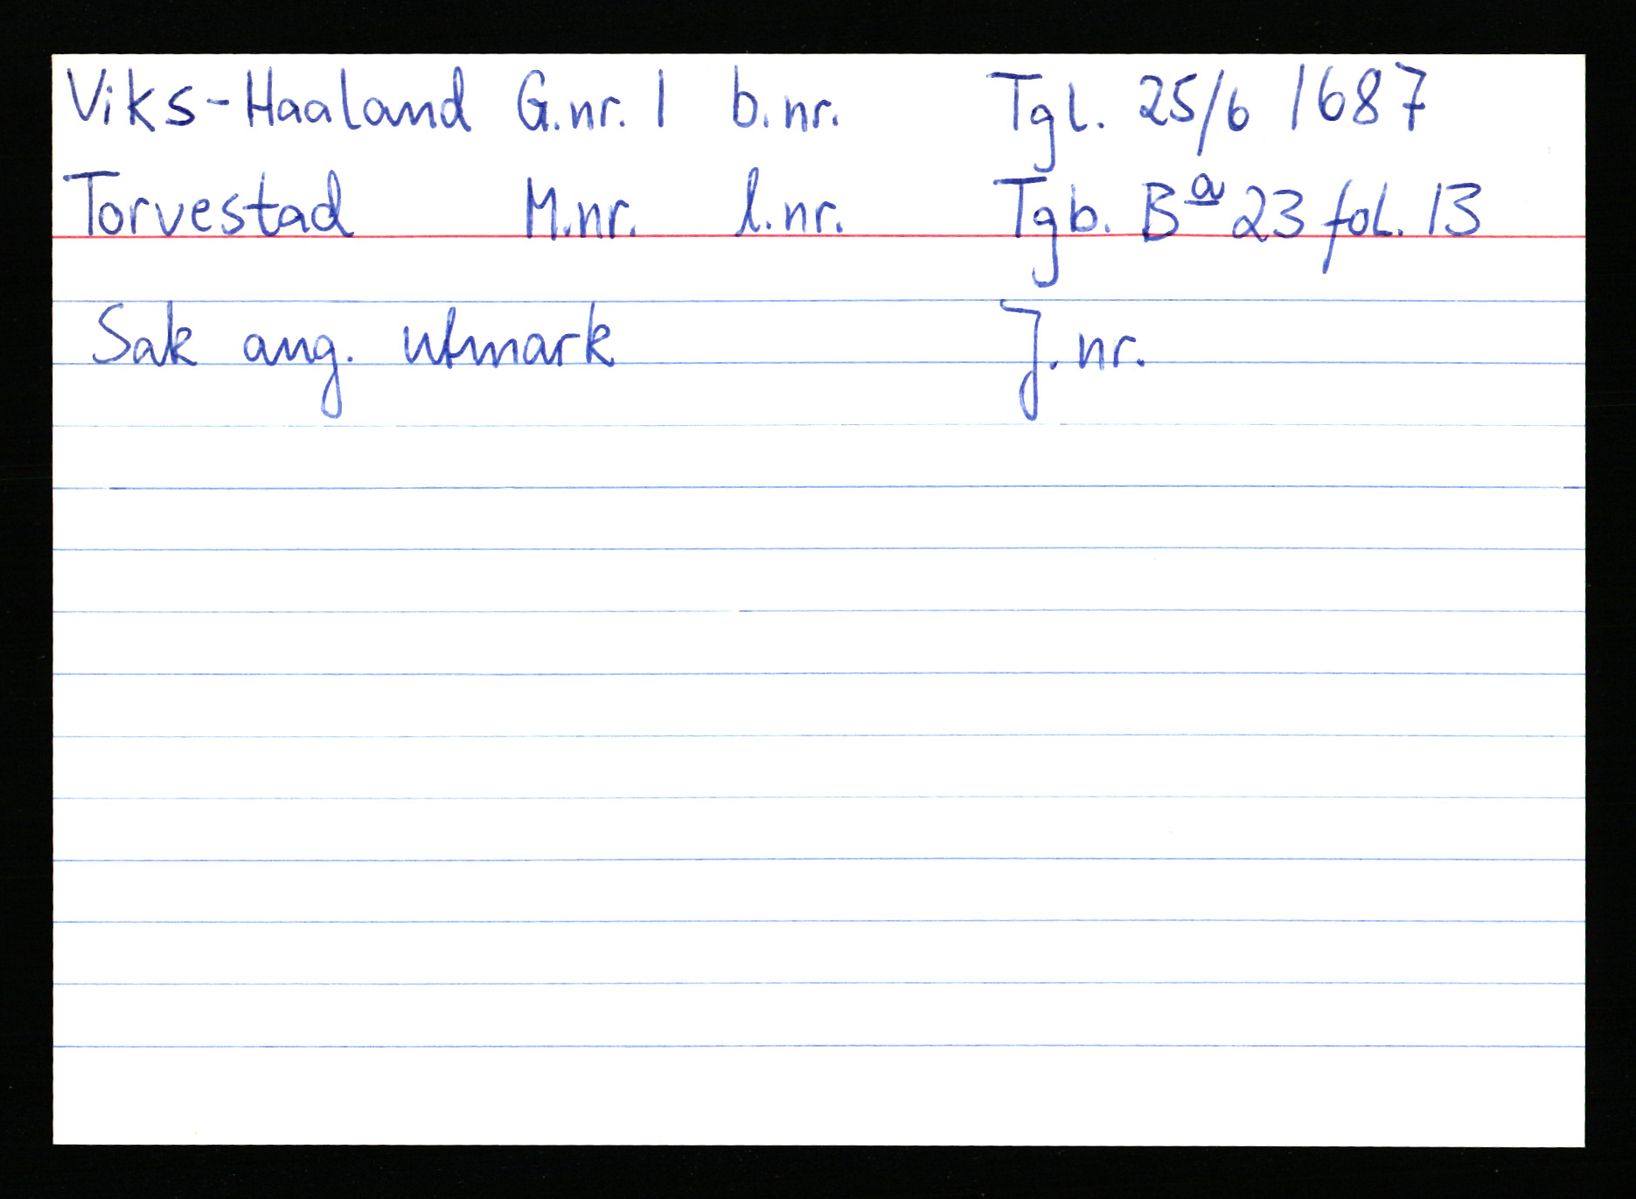 Viks-Haaland G.nr. 1 b.nr. Tgl. 25/6 1687
Torvestad M.nr. l.nr. Tgb. Bª 23 fol. 13
Sak ang. utmark J.nr.